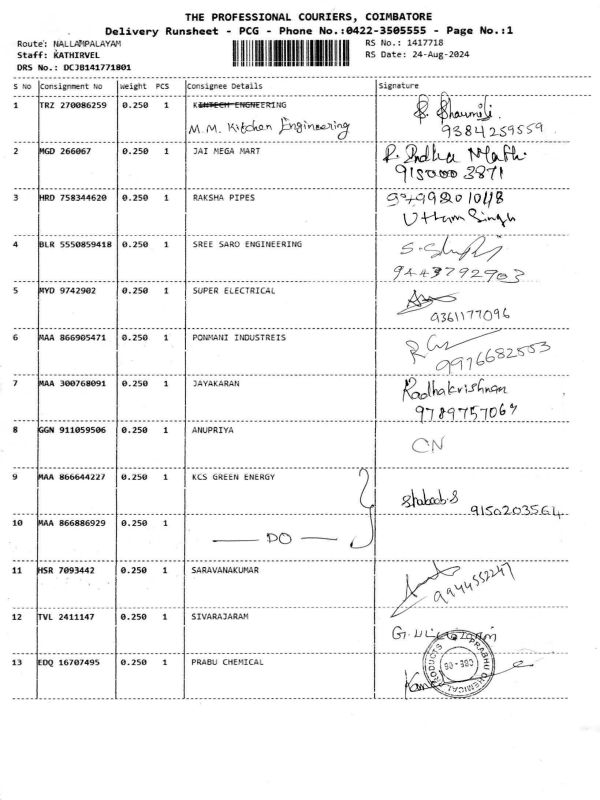 THE PROFESSIONAL COURIERS, COIMBATORE
Delivery Runsheet - PCG - Phone No.:0422-3505555 - Page No.:1
Route: NALLAMPALAYAM
Staff: KATHIRVEL
DRS No.: DCJB141771801
RS No.: 1417718
RS Date: 24-Aug-2024
S No Consignment No Weight PCS Consignee Details Signature
1 TRZ 270086259 0.250 1 KINTECH ENGNEERING
M.M. Kitchen Engineering
9384259559
2 MGD 266067 0.250 1 JAI MEGA MART
915000 3871
3 HRD 758344620 0.250 1 RAKSHA PIPES
Uttam Singh
4 BLR 5550859418 0.250 1 SREE SARO ENGINEERING
9443792903
5 MYD 9742902 0.250 1 SUPER ELECTRICAL
9361177096
6 MAA 866905471 0.250 1 PONMANI INDUSTREIS
9976682553
7 MAA 300768091 0.250 1 JAYAKARAN
Radhakrishnan
9789757067
8 GGN 911059506 0.250 1 ANUPRIYA
CN
9 MAA 866644227 0.250 1 KCS GREEN ENERGY
9150203564
10 MAA 866886929 0.250 1
DO
11 HSR 7093442 0.250 1 SARAVANAKUMAR
9944552247
12 TVL 2411147 0.250 1 SIVARAJARAM
13 EDQ 16707495 0.250 1 PRABU CHEMICAL
PRABHU CHEMICAL PRODUCTS